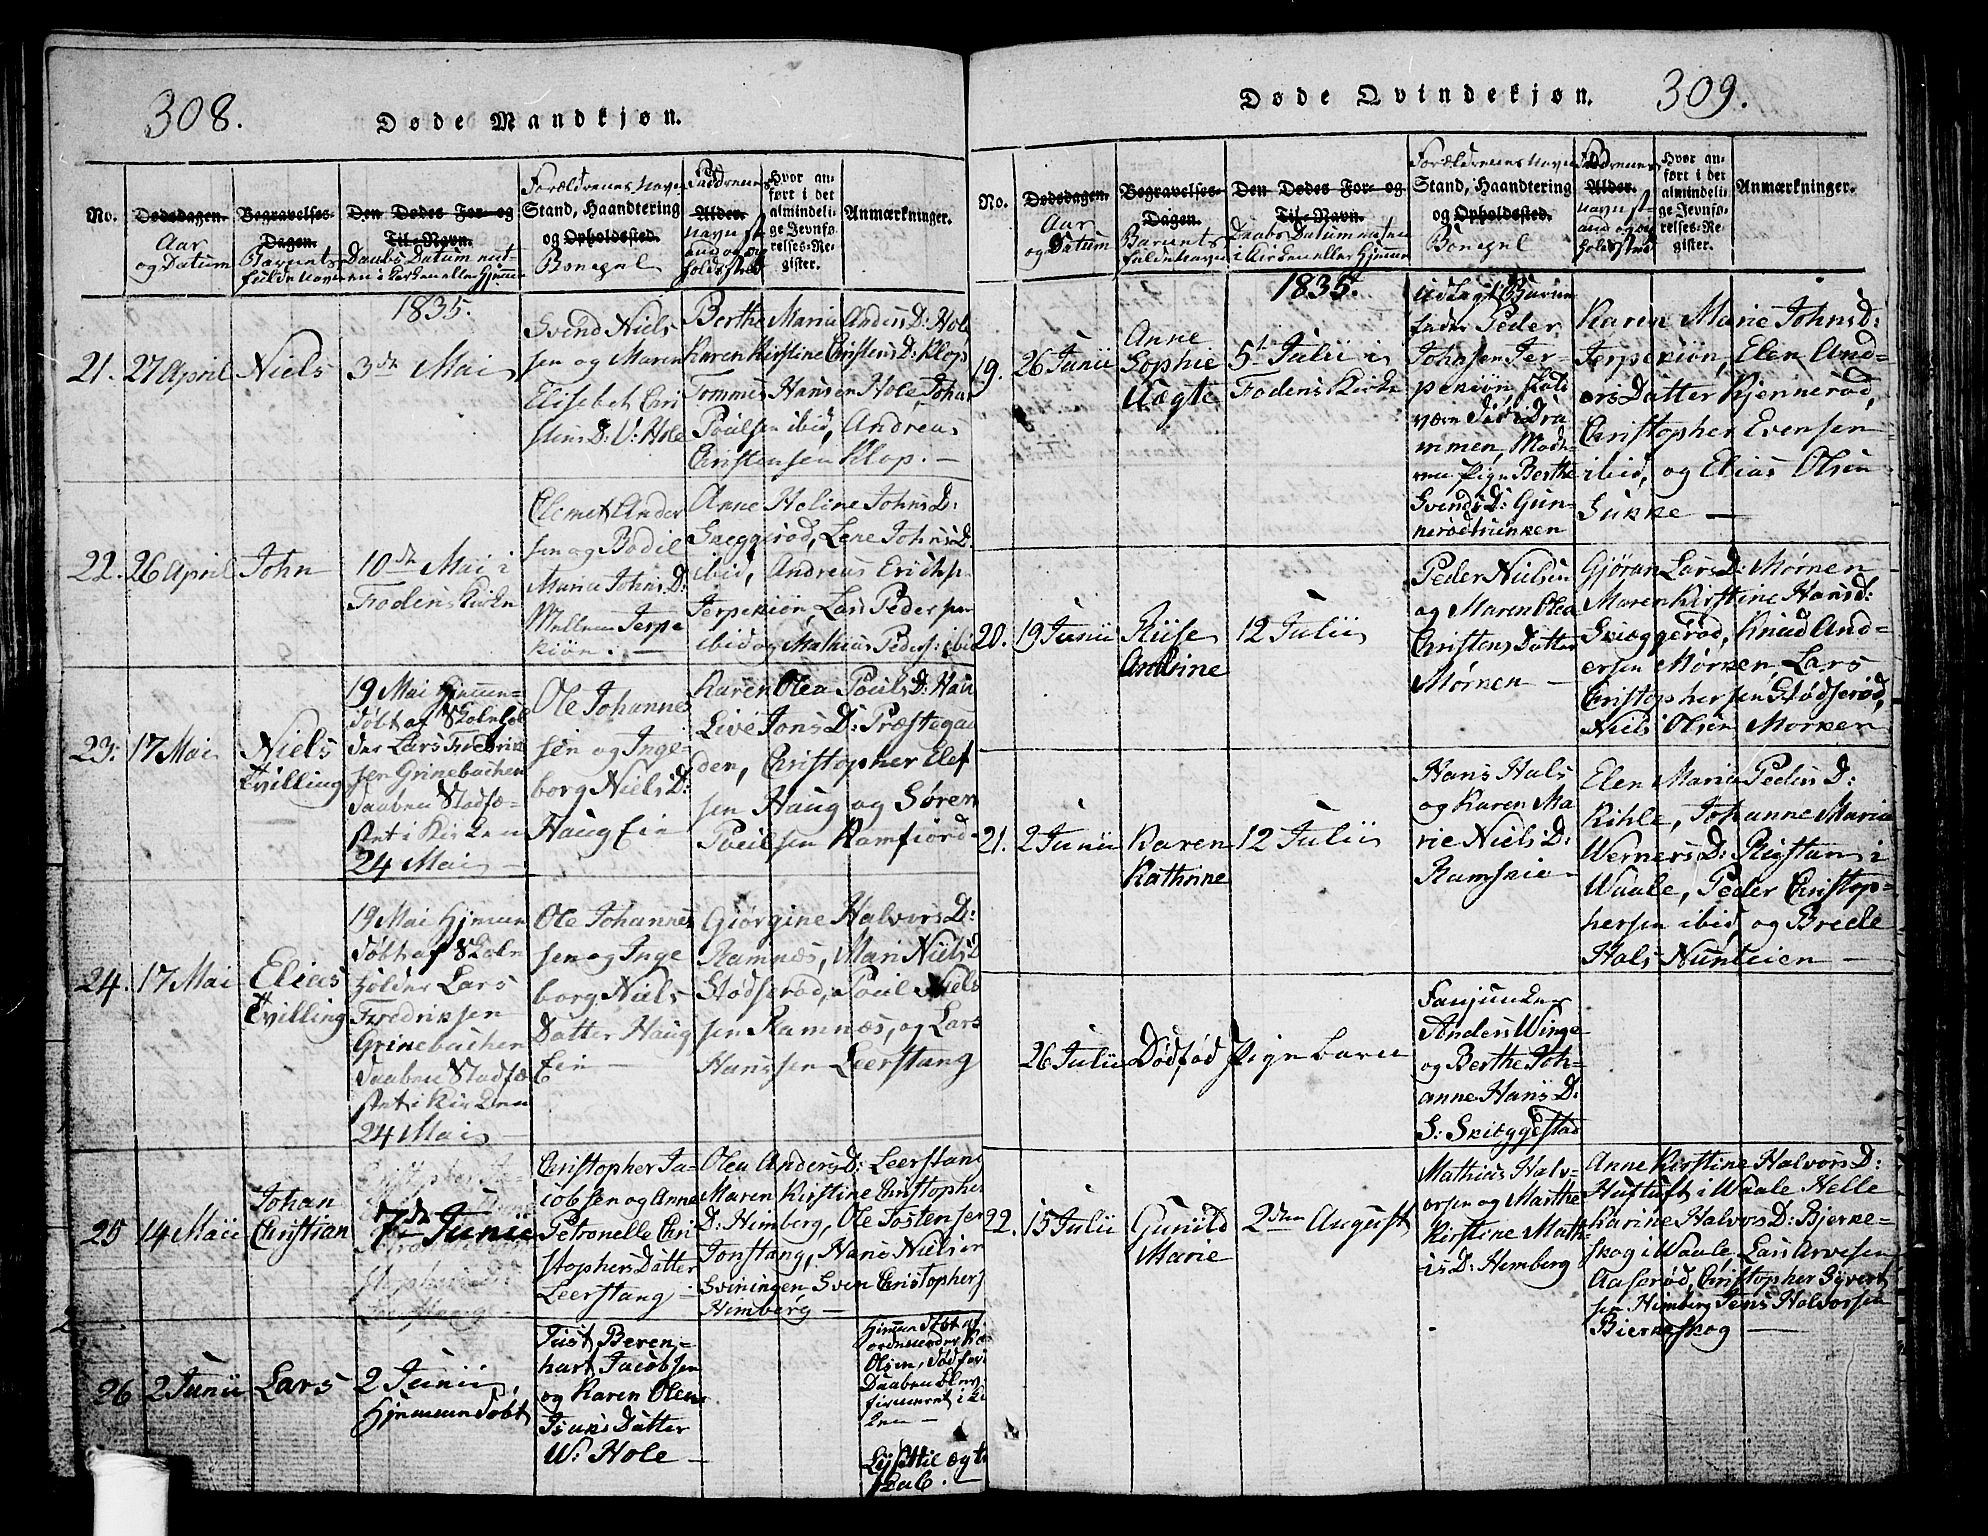 308.
Døde Mandkjøn.
No.
Dødsdagen.
Aar
og Datum
Begravelses-
Dagen.
Barnets
fulde Navn
Den Dødes For- og
Til-Navn.
Daabs Datum net-
en i Kirken eller Hjemme
Forældrenes Navn
Stand, Haandtering
og Opholdssted.
Bopæl
Faddrenes
Alder.
Navn st-
and og op
holdssted
Hvor an-
ført i det
almindeli-
ge Jevnfø-
relses-Re-
gister.
Anmærkninger.
1835.
21. 27 April Niels
3de Mai
Svend Niel-
sen og Maren
Elisebet Cri
stens D: V: Hole
Berthe Maria Anders D: Hole
Karen Kirstine Cristens D: Klop
Tommes Hansen Hole Johan
Poulsen ibid, Andreas
Cristensen Klop. —
22. 26 April John
10de Mai i
Fodens Kirke
Clemet Ander
sen og Bodil
Maria Johns D:
Mellem Jerpe
kiøn. —
Anne Heline Johns D:
Skeggerød, Lene Johns D:
ibid, Andreas Erichsen
Jerpekiøn, Lars Pedersen
ibid og Mathias Peders: ibid
23. 17 Mai Niels
Tvilling
19 Mai Hjemme-
døbt af Skolehol
der Lars Fredrik
sen Grinebachen
Daaben Stadfæ-
stet i Kirken
24 Mai —
Ole Johannes
sen og Inge-
borg Niels D:
Haug Eie
Karen Olea Pouls D: Hau
Live Jons D: Præstegaa
den, Cristopher Elef
sen Haug og Søren
Poulsen Ramfiord
24. 17 Mai Elias
Tvilling
19 Mai Hjemme
døbt af Skole
holder Lars
Fredriksen
Grinebachen
Daaben Stadfæ
stet i Kirken
24 Mai —
Ole Johannes
sen og Inge
borg Niels
Datter Haug
Eie —
Giørgine Halvors D:
Ramnæs, Mari Niels D
Stodserød, Poul Niels
sen Ramnæs, og Lars
Hanssen Leerstang
25 14 Maii Johan
Christian
7de Junii
Cristopher Ja-
cobsen og Anne
Petronelle Cri
stophers Datter
Leerstang —
Olea Anders D: Leerstang
Maren Kirstine Cristopher
D: Himberg, Ole Tostensen
Tonstang, Hans Nielsen
Sviningen Sven Cristophers
Himberg —
26 2 Junii Lars
2 Junii,
Hjemmedøbt
Just Beren-
hart Jacobsen
og Karen Olea
Isaks Datter
W: Hole —
Hjemme døbt af
Olsen, død før
Daaben blev
firmeret i Kir
ken —
309.
Døde Qvindekjøn.
No.
Dødsdagen.
Aar
og Datum
Begravelses-
Dagen.
Barnets
fulde Navn
Den Dødes For- og
Til-Navn.
Daabs Datum
i Kirken eller Hjemme
Forældrenes Navn
Stand, Haandtering
og Opholdssted.
Bopæl
Faddrenes
Alder.
Navn st-
and og op
holdssted
Hvor an-
ført i det
almindeli-
ge Jevnfø-
relses-Re-
gister.
Anmærkninger.
1835.
19. 26 Junii Anne
Sophie
Uægte
5t Julii i
Fodens Kirke
Udlagt Barne
fader Peder
Johnsen Jer-
pekiøn,
i Dra
mmen, Mode-
ren Pige Berthe
Svends D: Gun-
nerødtrinken
Karen Marie Johns D:
Jerpekiøn, Elen And-
ers Datter Kjennerød,
Cristopher Evensen
ibid, og Elias Olsen
Sukke —
20. 19 Junii Riise
Andrine
12 Julii
Peder Nielsen
og Maren Olea
Cristens Datter
Mørken —
Gjøran Lars D: Mørken
Maren Kirstine Hansd:
Skieggerød, Knud And-
ersen Mørken, Lars
Cristophersen Stodserød,
Niels Olsen Morken
21. 2 Junii Karen
Kathrine
12 Julii
Hans Hals
og Karen Ma
rie Niels D:
Ramskie
Elen Maria Peders D:
Kihle, Johanne Maria
Werners D: Rigstam i
Waale, Peder Cristop-
hersen ibid, og Brede
Hals Nunteien —
26 Julii Dødfød Pigebarn
Fanjunker
Anders Winge
og Berthe Joh-
anne Hans D:
S: Skieggestad
22. 15 Julii Gunild
Marie
2den August
Mathias Halv-
orsen og Marthe
Kirstine Math-
is D: Hemberg
Anne Kirstine Halvors D:
Huftuft i Waale Helle
Karine Halvors D: Bjerke-
skog i Waale, Lars Arvesen
Aaserød, Cristopher Syvert
sen Himberg Jens Halvorsen
Bierkeskog —